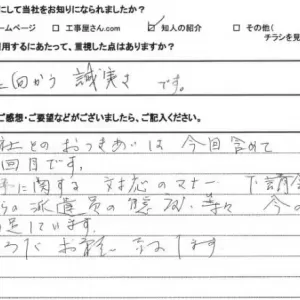 にして当社をお知りになられましたか？
ームページ □ 工事屋さん.com ☑ 知人の紹介 □ その他(
チラシを見
用するにあたって、重視した点はありますか？
誠実さ です。
ご感想・ご要望などがございましたら、ご記入ください。
社とのおつきあいは 今回含めて
回目です。
に関する 対応のマナー 下請
らの派遣員の態効・等々 今の
足しています。